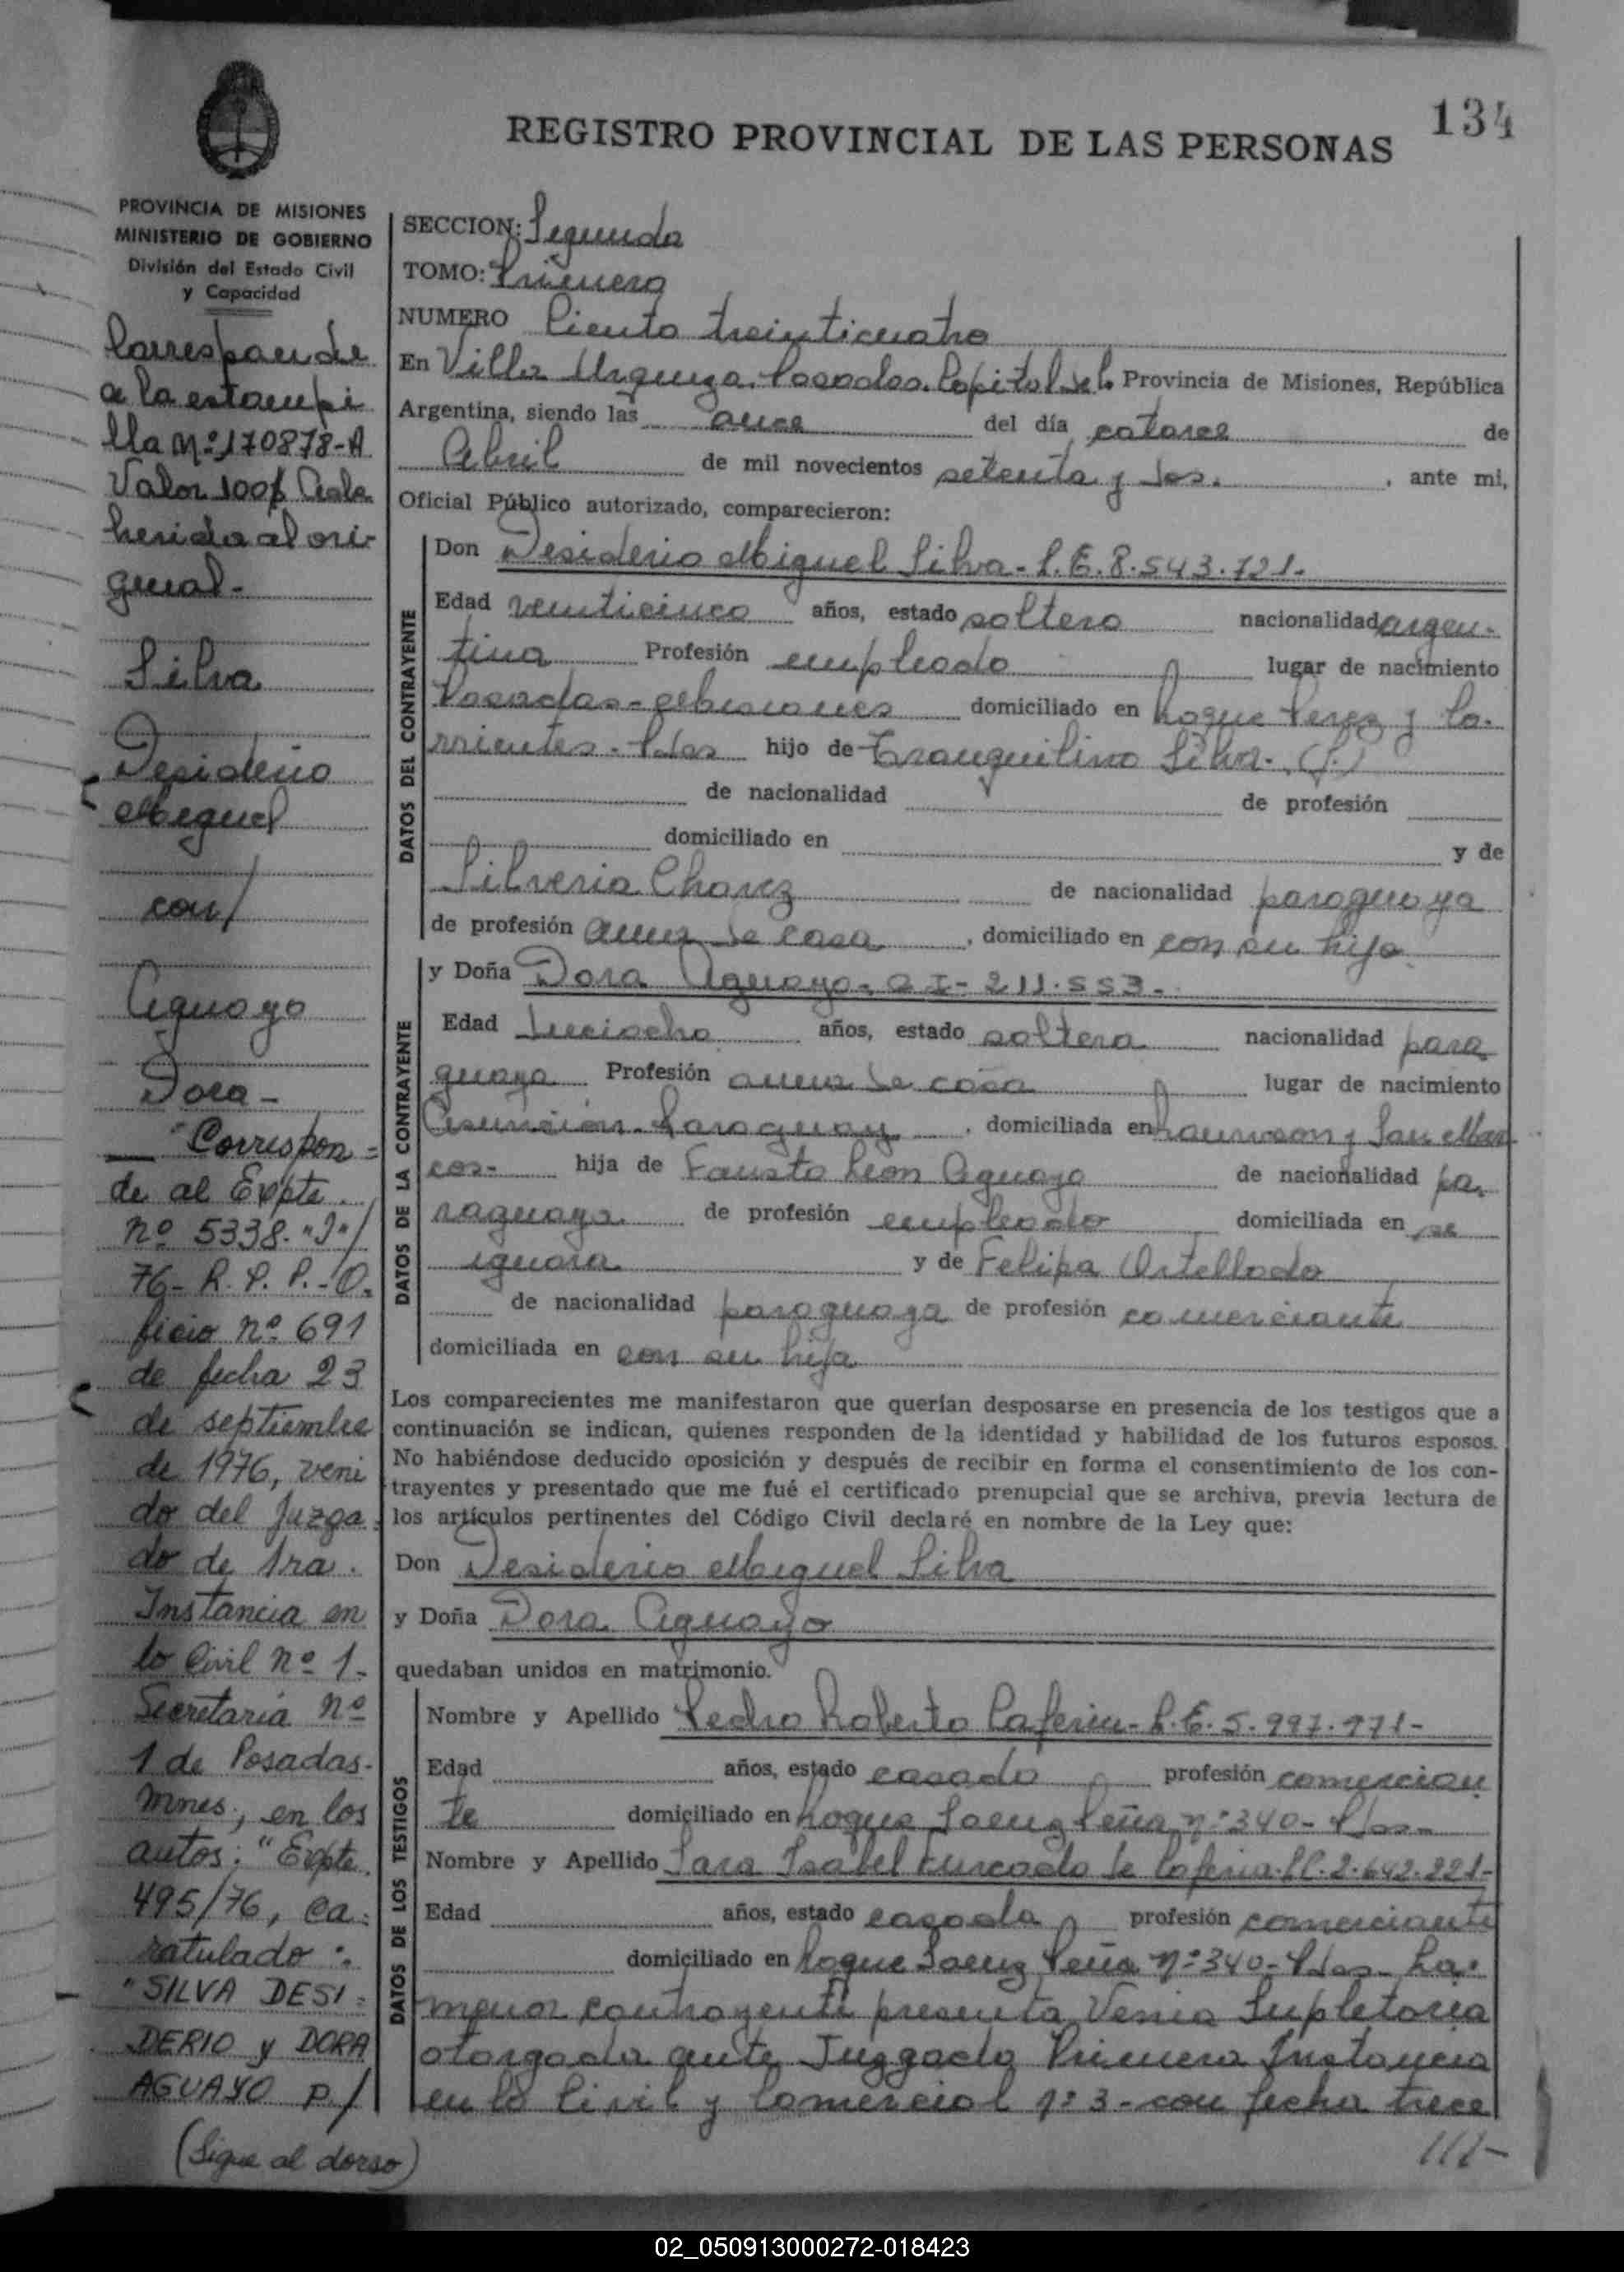 134
REGISTRO PROVINCIAL DE LAS PERSONAS
PROVINCIA DE MISIONES
MINISTERIO DE GOBIERNO
División del Estado Civil
y Capacidad
Corresponde
a la estampi
lla Nº 170878-A
Valor 100$
herida al ori-
ginal-
Silva
Desiderio
Miguel
con/
Aguayo
Dora-
"Correspon=
de al Expte.
nº 5338-"J"/
76- R.P.P.-O.
ficio nº 691
de fecha 23
de septiembre
de 1976, veni
do del Juzga
do de 1ra.
Instancia en
lo Civil nº 1.
Secretaría nº
1 de Posadas-
Mnes., en los
autos: "Expte.
495/76, ca:
ratulado:
"SILVA DESI=
DERIO y DORA
AGUAYO P./
(Sigue al dorso)
SECCION: Segunda
TOMO: Primero
NUMERO Ciento treinticuatro
En Villa Urquiza, Posadas, Capital de la Provincia de Misiones, República
Argentina, siendo las once del día catorce de
Abril de mil novecientos setenta y dos. , ante mi,
Oficial Público autorizado, comparecieron:
DATOS DEL CONTRAYENTE
Don Desiderio Miguel Silva- L.E. 8.543.721-
Edad veinticinco años, estado soltero nacionalidad argen-
tina Profesión empleado lugar de nacimiento
Posadas-Misiones domiciliado en Roque Perez y Co-
rrientes- Pdas hijo de Tranquilino Silva- (f.)
de nacionalidad de profesión
domiciliado en y de
Silveria Chavez de nacionalidad paraguaya
de profesión ama de casa , domiciliado en con su hijo
DATOS DE LA CONTRAYENTE
y Doña Dora Aguayo- C I- 211.553-
Edad dieciocho años, estado soltera nacionalidad para
guaya Profesión ama de casa lugar de nacimiento
Asunción-Paraguay , domiciliada en y San Mar
cos- hija de Fausto Leon Aguayo de nacionalidad pa
raguaya de profesión empleado domiciliada en se
ignora y de Felipa Ortellado
de nacionalidad paraguaya de profesión comerciante
domiciliada en con su hija
Los comparecientes me manifestaron que querían desposarse en presencia de los testigos que a
continuación se indican, quienes responden de la identidad y habilidad de los futuros esposos.
No habiéndose deducido oposición y después de recibir en forma el consentimiento de los con-
trayentes y presentado que me fué el certificado prenupcial que se archiva, previa lectura de
los artículos pertinentes del Código Civil declaré en nombre de la Ley que:
Don Desiderio Miguel Silva
y Doña Dora Aguayo
quedaban unidos en matrimonio.
DATOS DE LOS TESTIGOS
Nombre y Apellido Pedro Roberto L.E. 5.997.971-
Edad años, estado casado profesión comercian
te domiciliado en Roque Saenz Peña nº 340- Pdas-
Nombre y Apellido Sara Isabel de L.C. 2.642.221-
Edad años, estado casada profesión comerciante
domiciliado en Roque Saenz Peña Nº 340- Pdas- La
menor contrayente presenta Venia Supletoria
otorgada ante Juzgado Primera Instancia
en lo Civil y Comercial Nº 3- con fecha trece
///-
02_050913000272-018423